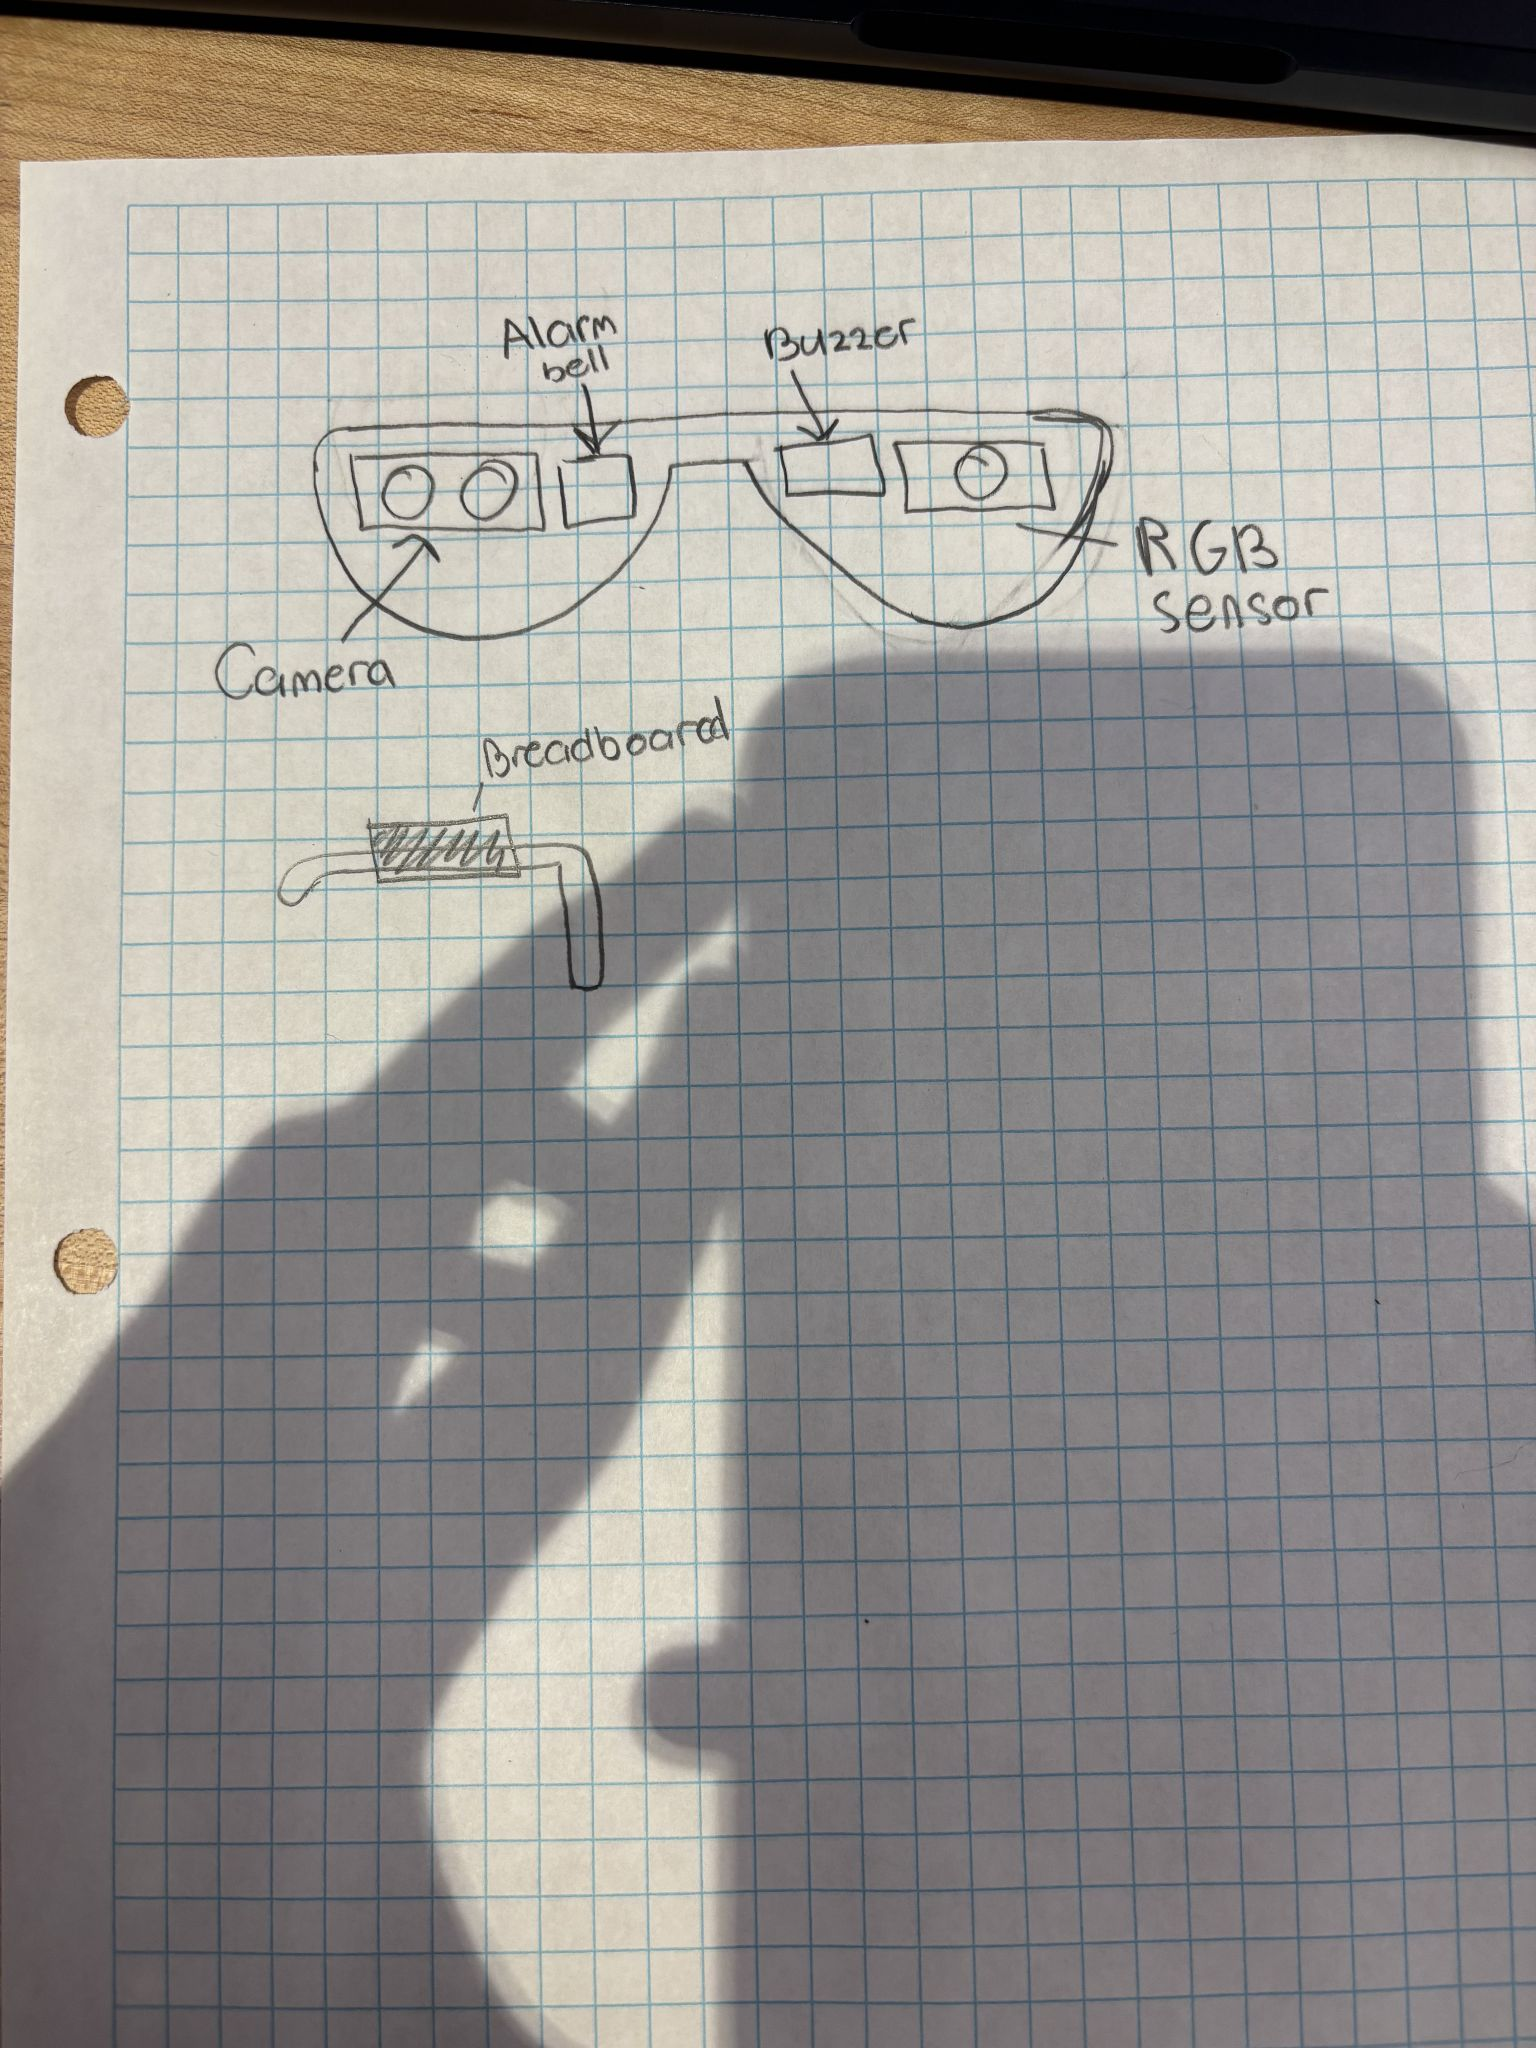 Alarm
bell
Buzzer
RGB
sensor
Camera
Breadboared